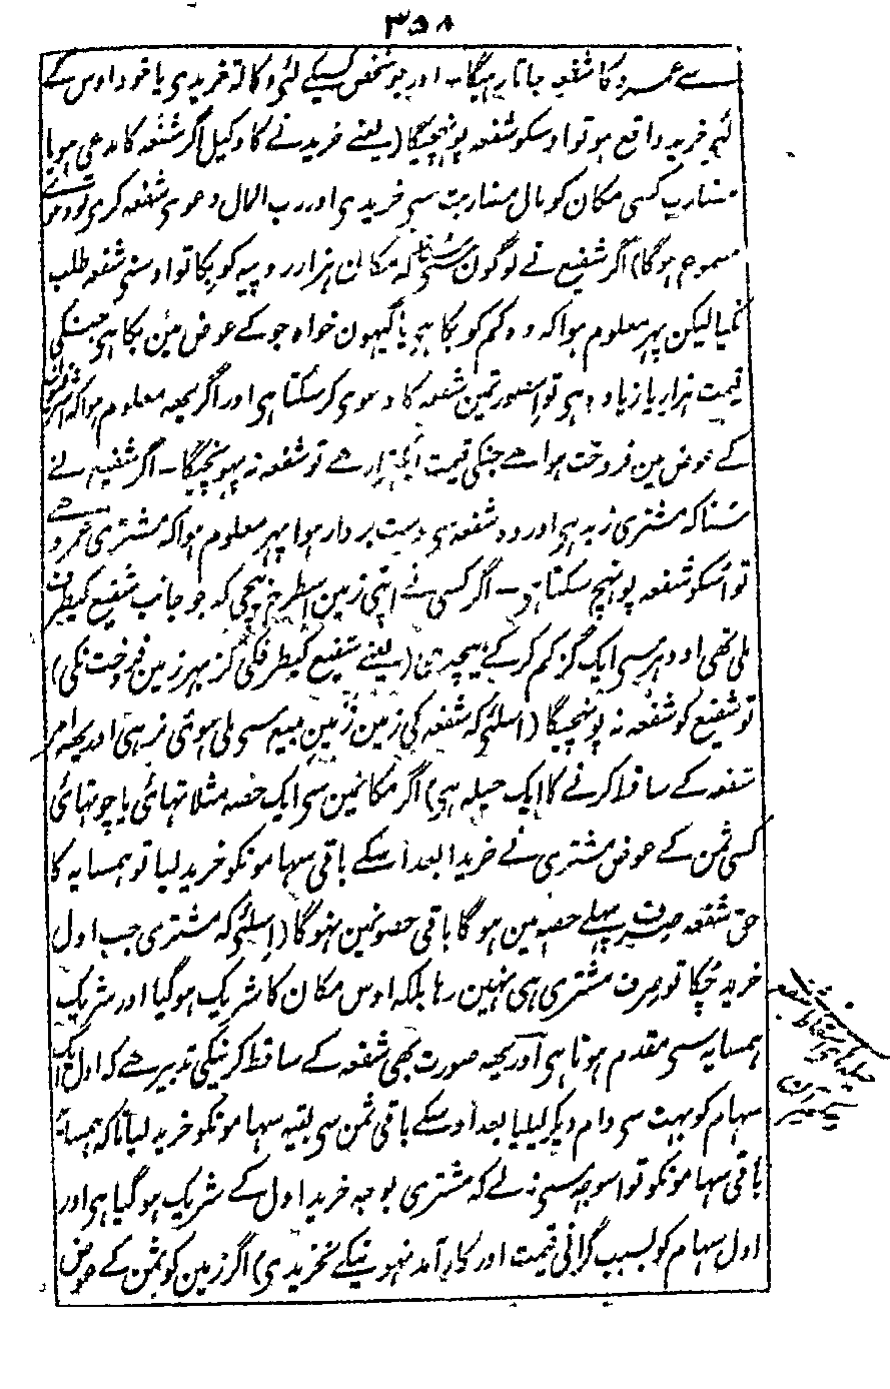 ۳۵۸
سے عمرو کا شفعہ جاتا رہیگا۔ اور جو شخص کسیکے لئے وکالۃً خریدی یا خود اوس کے
لئے خرید واقع ہو تو اوسکو شفعہ پونہچیگا (یعنے خریدنے کا وکیل اگر شفعہ کا مدعی ہو یا
مضارب کسی مکان کو مال مضاربت سی خریدی اور رب المال دعوی شفعہ کری تو دعوے
مسموع ہوگا) اگر شفیع نے لوگون سی سنا کہ مکان ہزار روپیہ کو بکا تو اوسنی شفعہ طلب
نکیا لیکن پہر معلوم ہوا کہ وہ کم کو بکا ہی یا گیہون خواہ جو کے عوض مین بکا ہی جنکی
قیمت ہزار یا زیادہ ہی تو اسصورتمین شفعہ کا دعوی کر سکتا ہی اور اگر یہہ معلوم ہوا کہ اشرفیون
کے عوض مین فروخت ہوا ہے جنکی قیمت ایکہزار ہے تو شفعہ نہ پہونچیگا۔ اگر شفیع نے
سنا کہ مشتری زید ہی اور وہ شفعہ سی دست بردار ہوا پہر معلوم ہوا کہ مشتری عمرو ہے
تو اُسکو شفعہ پونہچ سکتا ہی۔ اگر کسی نے اپنی زمین اسطرح بیچی کہ جو جانب شفیع کیطرف
ملی تھی اودہر سی ایک گز کم کر کے بیچدی (یعنے شفیع کیطرفکی گز بہر زمین فروخت نکی)
تو شفیع کو شفعہ نہ پونہچیگا (اسلئے کہ شفعہ کی زمین زمین مبیع سی ملی ہوئی نرہی اور یہہ امر
شفعہ کے ساقط کرنے کا ایک حیلہ ہی) اگر مکانمین سی ایک حصہ مثلا تہائی یا چوتہائی
کسی ثمن کے عوض مشتری نے خریدا بعد اُسکے باقی سہامونکو خرید لیا تو ہمسایہ کا
حق شفعہ صرف پہلے حصہ مین ہوگا باقی حصونمین نہوگا (اسلئے کہ مشتری جب اول
خرید چُکا تو صرف مشتری ہی نہین رہا بلکہ اوس مکان کا شریک ہوگیا اور شریک
ہمسایہ سی مقدم ہوتا ہی اور یہہ صورت بھی شفعہ کے ساقط کرنیکی تدبیر ہے کہ اول ایک
سہام کو بہت سی دام دیکر لیلیا بعد اُوسکے باقی ثمن سی بقیہ سہامونکو خرید لیا تاکہ ہمسایہ
باقی سہامونکو تو اسوجہ سی نہ لے کہ مشتری بوجہ خرید اول کے شریک ہوگیا ہی اور
اول سہام کو بسبب گرانی قیمت اور کارآمد نہونیکے نخریدی) اگر زمین کو ثمن کے عوض